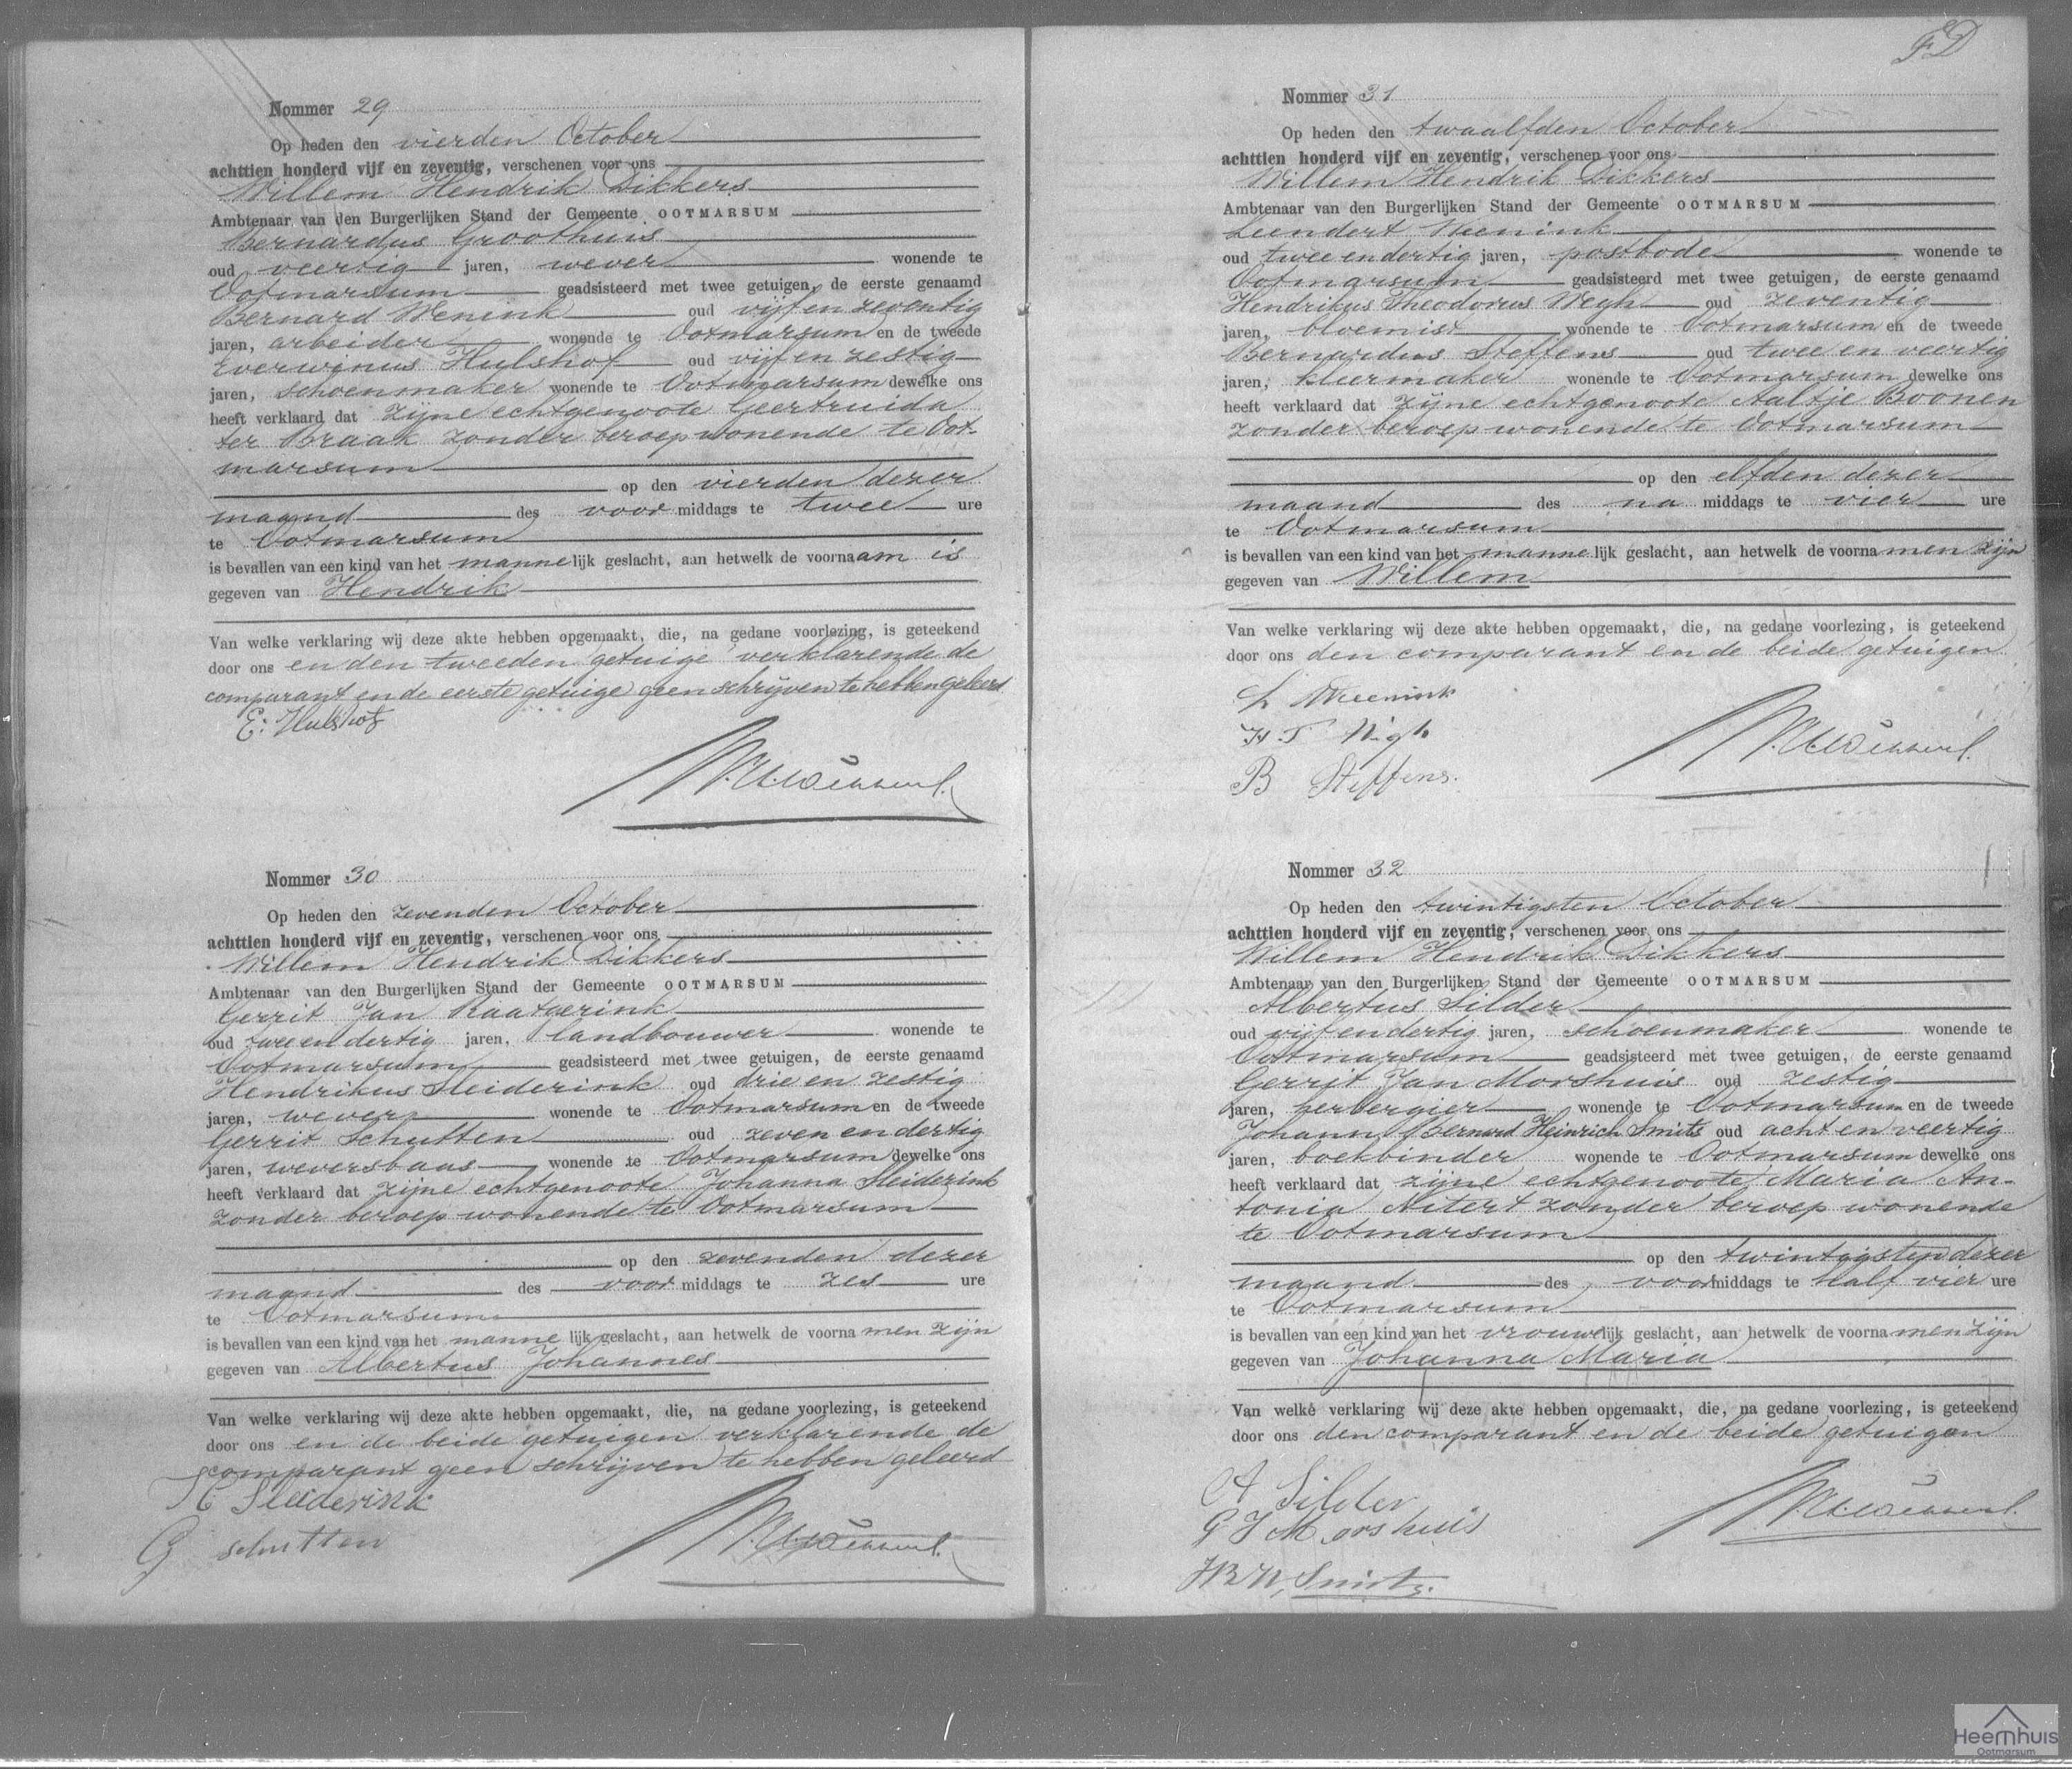 Nommer 29
Op heden den vierden October
achttien honderd vijf en zeventig, verschenen voor ons
Willem Hendrik Dikkers
Ambtenaar van den Burgerlijken Stand der Gemeente OOTMARSUM
Bernardus Groothuis
oud veertig jaren, wever wonende te
Ootmarsum geadsisteerd met twee getuigen, de eerste genaamd
Bernard Wenink oud vijf en zeventig
jaren, arbeider wonende te Ootmarsum en de tweede
Everwinus Hulshof oud vijf en zestig
jaren, schoenmaker wonende te Ootmarsum dewelke ons
heeft verklaard dat zijne echtgenoote Geertruida
ter Braak zonder beroep wonende te Oot-
marsum
op den vierden dezer
maand des voor middags te twee ure
te Ootmarsum
is bevallen van een kind van het mannelijk geslacht, aan hetwelk de voornaam is
gegeven van Hendrik
Van welke verklaring wij deze akte hebben opgemaakt, die, na gedane voorlezing, is geteekend
door ons en den tweeden getuige verklarende de
comparant en de eerste getuige geen schrijven te hebben geleerd
E. Hulshof
Nommer 30
Op heden den zevenden October
achttien honderd vijf en zeventig, verschenen voor ons
Willem Hendrik Dikkers
Ambtenaar van den Burgerlijken Stand der Gemeente OOTMARSUM
Gerrit Jan Raatgerink
oud twee en dertig jaren, landbouwer wonende te
Ootmarsum geadsisteerd met twee getuigen, de eerste genaamd
Hendrikus Sleiderink oud drie en zestig
jaren, wever wonende te Ootmarsum en de tweede
Gerrit Schutten oud zeven en dertig
jaren, weversbaas wonende te Ootmarsum dewelke ons
heeft verklaard dat zijne echtgenoote Johanna Sleiderink
zonder beroep wonende te Ootmarsum
op den zevenden dezer
maand des voor middags te zes ure
te Ootmarsum
is bevallen van een kind van het mannelijk geslacht, aan hetwelk de voornamen zijn
gegeven van Albertus Johannes
Van welke verklaring wij deze akte hebben opgemaakt, die, na gedane voorlezing, is geteekend
door ons en de beide getuigen verklarende de
comparant geen schrijven te hebben geleerd
H Sleiderink
G schutten
Nommer 31
Op heden den twaalfden October
achttien honderd vijf en zeventig, verschenen voor ons
Willem Hendrik Dikkers
Ambtenaar van den Burgerlijken Stand der Gemeente OOTMARSUM
Leendert Meenink
oud twee en dertig jaren, postbode wonende te
Ootmarsum geadsisteerd met twee getuigen, de eerste genaamd
Hendrikus Theodorus Wegh oud zeventig
jaren, bloemist wonende te Ootmarsum en de tweede
Bernardus Steffens oud twee en veertig
jaren, kleermaker wonende te Ootmarsum dewelke ons
heeft verklaard dat zijne echtgenoote Aaltje Boonen
zonder beroep wonende te Ootmarsum
op den elfden dezer
maand des na middags te vier ure
te Ootmarsum
is bevallen van een kind van het mannelijk geslacht, aan hetwelk de voornamen zijn
gegeven van Willem
Van welke verklaring wij deze akte hebben opgemaakt, die, na gedane voorlezing, is geteekend
door ons den comparant en de beide getuigen
L Meenink
H T
B Steffens.
Nommer 32
Op heden den twintigsten October
achttien honderd vijf en zeventig, verschenen voor ons
Willem Hendrik Dikkers
Ambtenaar van den Burgerlijken Stand der Gemeente OOTMARSUM
Albertus Silder
oud vijf en dertig jaren, schoenmaker wonende te
Ootmarsum geadsisteerd met twee getuigen, de eerste genaamd
Gerrit Jan Morshuis oud zestig
jaren, herbergier wonende te Ootmarsum en de tweede
Johann Bernard Heinrich Smits oud acht en veertig
jaren, boekbinder wonende te Ootmarsum dewelke ons
heeft verklaard dat zijne echtgenoote Maria An-
tonia Nitert zonder beroep wonende
te Ootmarsum
op den twintigsten dezer
maand des voor middags te half vier ure
te Ootmarsum
is bevallen van een kind van het vrouwelijk geslacht, aan hetwelk de voornamen zijn
gegeven van Johanna Maria
Van welke verklaring wij deze akte hebben opgemaakt, die, na gedane voorlezing, is geteekend
door ons den comparant en de beide getuigen
A Silder
G J Morshuis
Smits.
Heemhuis
Ootmarsum